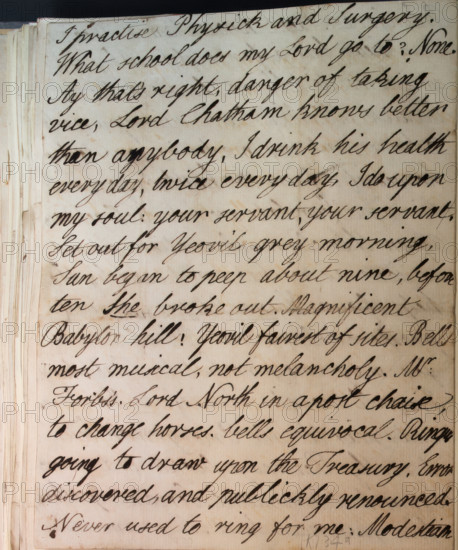 I practise Physick and Surgery.
What school does my Lord go to? None.
Ay that's right, danger of taking
vice, Lord Chatham knows better
than anybody, I drink his health
everyday, twice everyday, I do upon
my soul: your servant, your servant.
Set out for Yeovil grey morning,
Sun began to peep about nine, before
ten She broke out. Magnificent
Babylon hill! Yeovil fairest of sites. Bells
most musical, not melancholy. Mr.
Forbis. Lord North in a post chaise,
to change horses. bells equivocal. Ringers
going to draw upon the Treasury. Error
discovered, and publickly renounced.
Never used to ring for me: Modestum